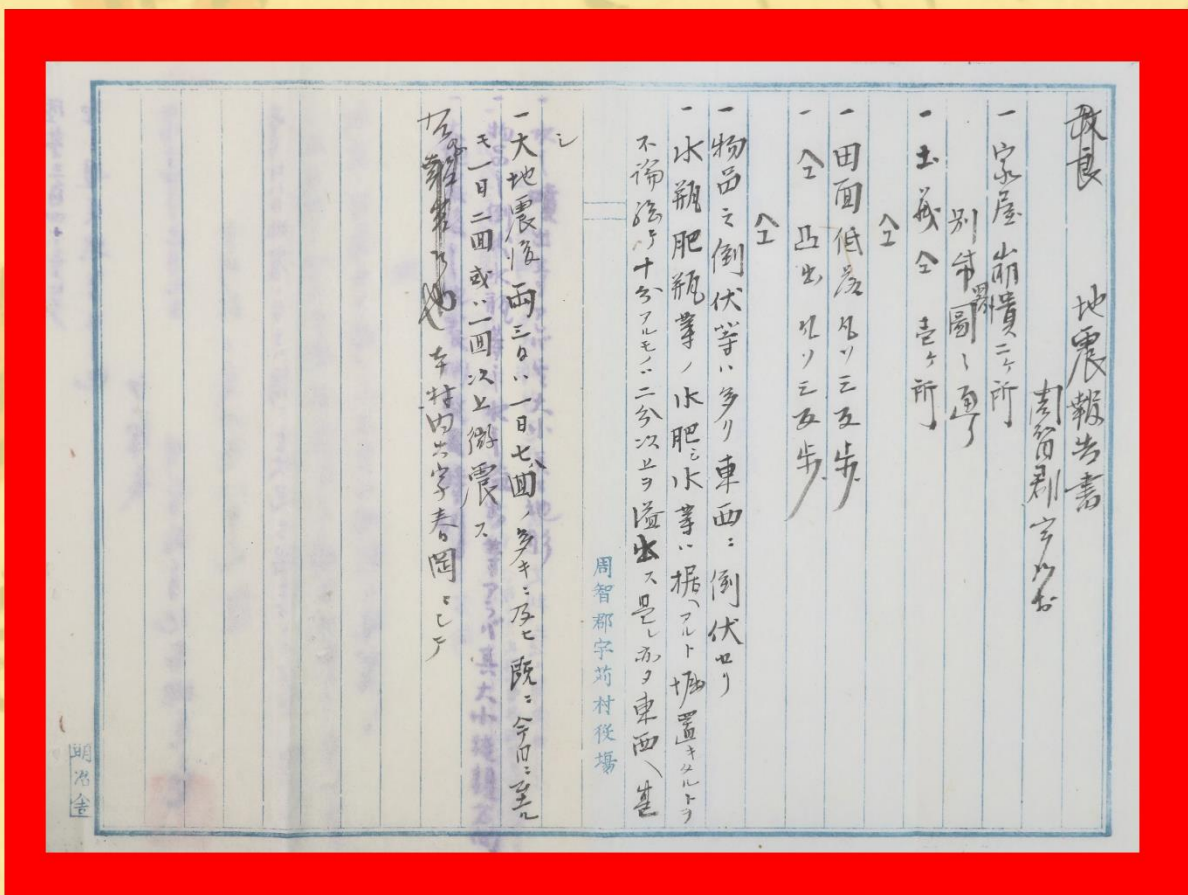 地震報告書
周智郡宇刈村
一家屋崩潰二ヶ所
別帋畧圖之通り
一土蔵仝壱ヶ所
仝
一田面低落凡ソ三反歩
一仝凸出凡ソ三反歩
仝
一物品之倒伏等ハ多ク東西ニ倒伏セリ
一水瓶肥瓶等ノ水肥シ水等ハ据ヘアルト堀置キタルトヲ
不論総テ十分アルモノハ二分次上ヲ溢出ス是レ亦タ東西ヘ甚
シ
周智郡宇苅村役場
一大地震後両三日ハ一日七八回ノ多キニ及ヒ既ニ今日ニ至ル
モ一日二回或ハ一回次上微震ス
本村内大字春岡ニシテ
明治舎